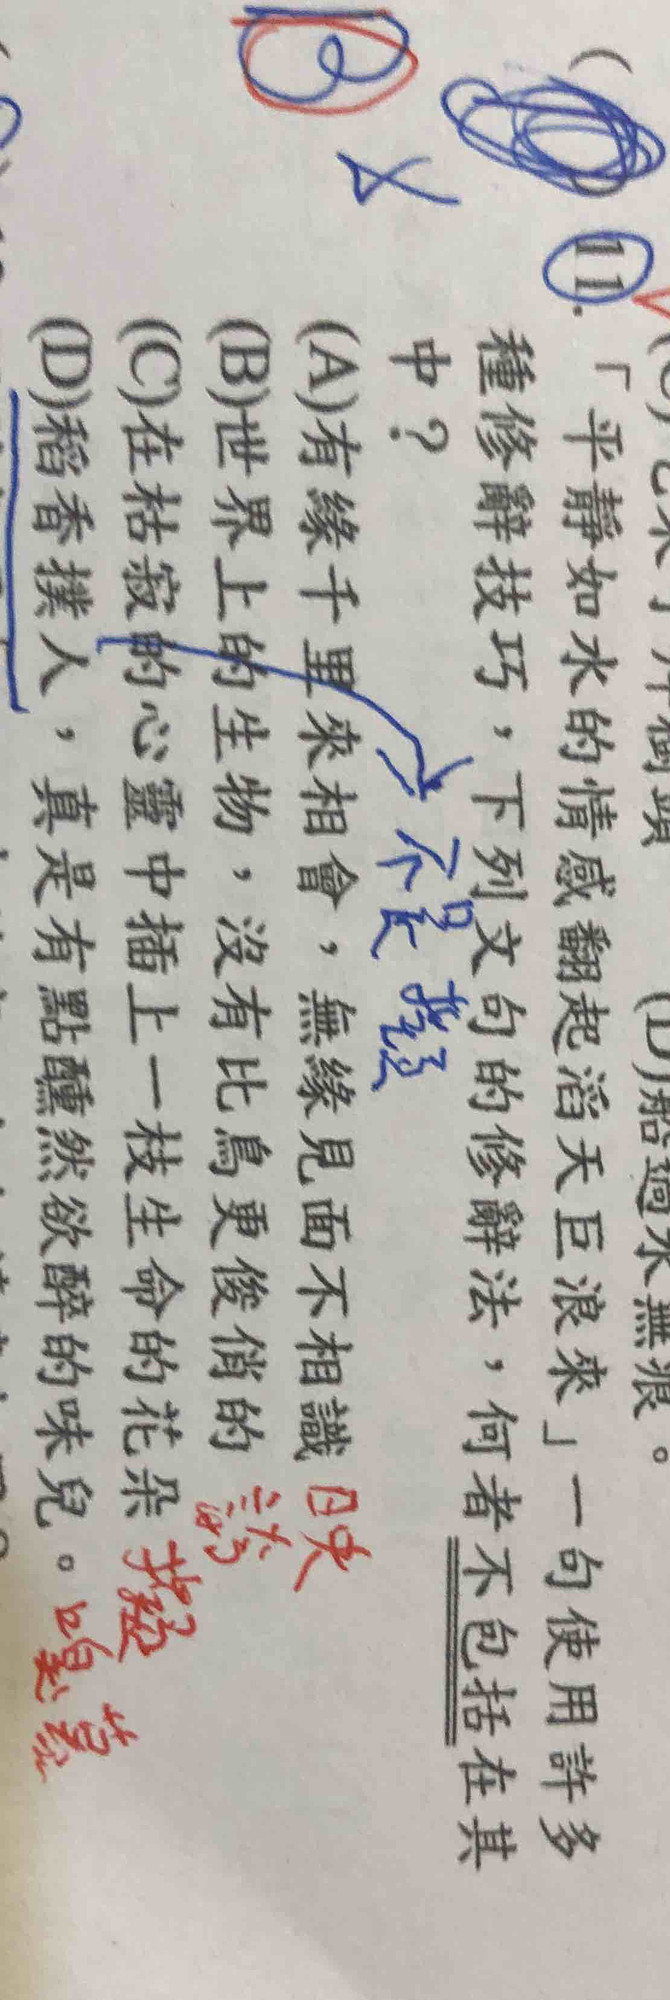 (D)船過水無痕。
11.「平靜如水的情感翻起滔天巨浪來」一句使用許多
種修辭技巧，下列文句的修辭法，何者不包括在其
中？
(A)有緣千里來相會，無緣見面不相識 映
(B)世界上的生物，沒有比鳥更俊俏的 誇
(C)在枯寂的心靈中插上一枝生命的花朵 擬
(D)稻香撲人，真是有點醺然欲醉的味兒。
B
不是擬